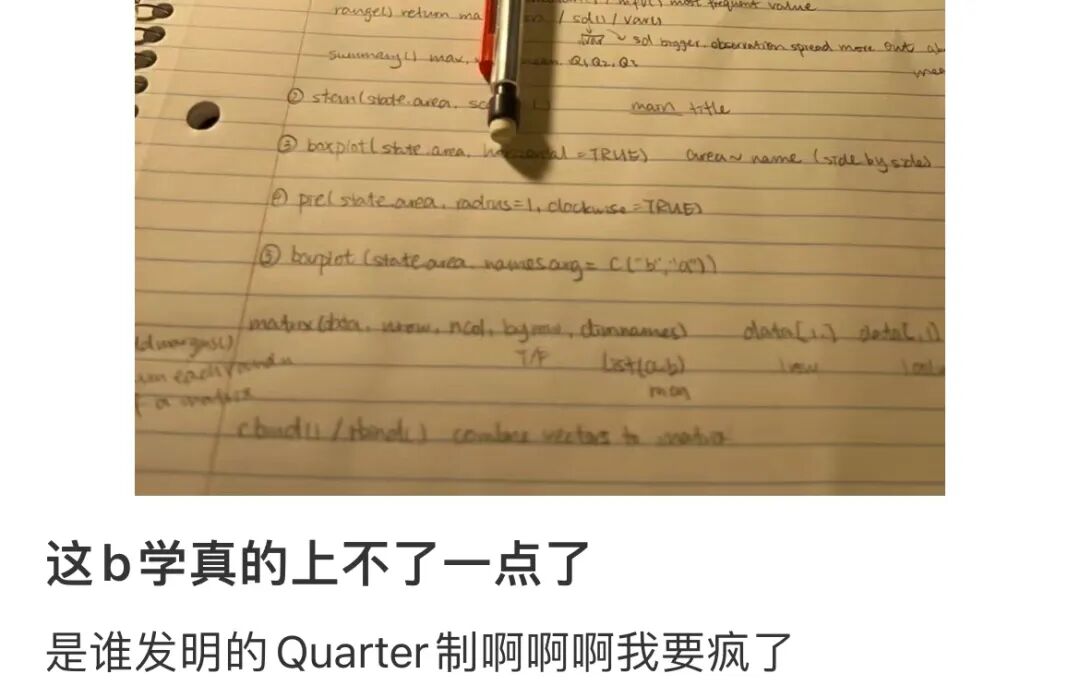 range() return ma / sd() / var()
most frequent value
√var ~ sd bigger. observation spread more out
summary() max, Q1, Q2, Q3
② stem(state.area, main title
③ boxplot(state.area, horizontal = TRUE) area~ name (side by side)
④ pie(state.area, radius=1, clockwise=TRUE)
⑤ barplot (state.area, names.arg= c("b","a"))
matrix(data, nrow, ncol, byrow, dimnames) data[1,] data[,1]
T/F list(a,b) row
a matrix
cbind() / rbind() combine vectors to matrix
这b学真的上不了一点了
是谁发明的Quarter制啊啊啊我要疯了